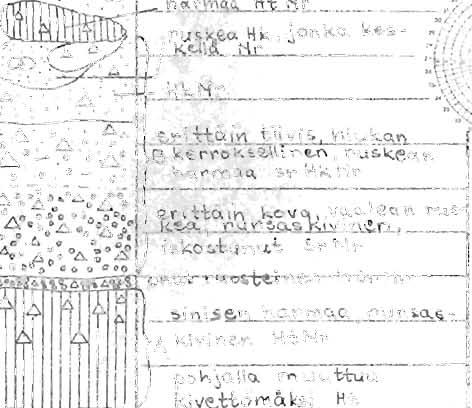 harmaa Ht Nr
ruskea Hk, jonka kes-
kellä Nr
Ht Mr
erittäin tiivis, hiukan
kerroksellinen, ruskean
harmaa sr Hk Mr
erittäin kova, vaalean rus-
kea, runsaskivinen,
iskostunut Sr Mr
sinisen harmaa, runsas-
kivinen Ht Mr
pohjalla muuttuu
kivettömäksi Ht